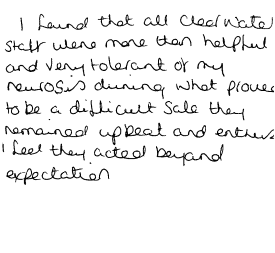 I found that all Clearwater
staff were more than helpful
and very tolerant of my
neurosis during what proved
to be a difficult sale they
remained upbeat and
I feel they acted beyond
expectation